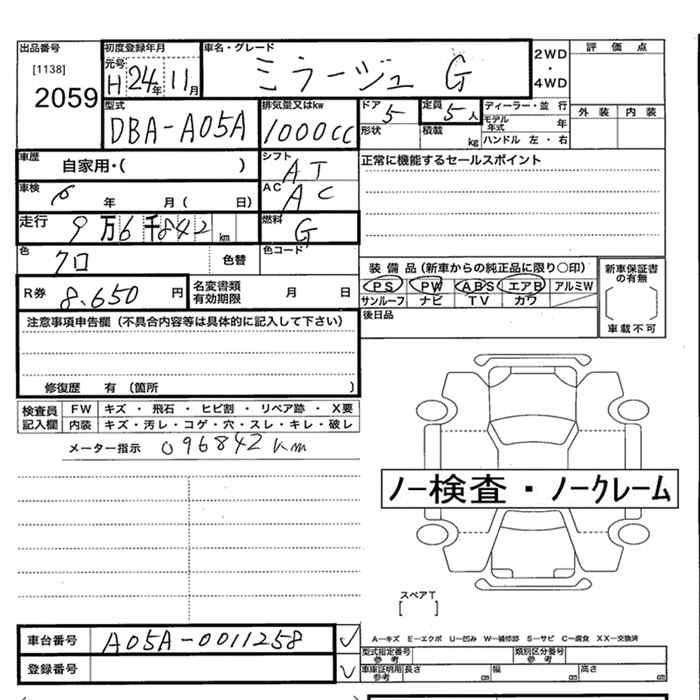 出品番号 初度登録年月 車名・グレード 2WD・4WD 評価点
[1138] 元号 H 24年 11月 ミラージュ G
2059
型式 排気量又はkw ドア 5 定員 5人 ディーラー・並行 外装 内装
DBA-A05A 1000cc 形状 積載 kg モデル年式 年
ハンドル 左・右
車歴 自家用・( ) シフト AT 正常に機能するセールスポイント
車検 年 月( 日) AC AC
走行 9万6千842km 燃料 G
色 クロ 色替 色コード
装備品(新車からの純正品に限り○印) 新車保証書の有無
R券 8.650円 名変書類有効期限 月 日 PS PW ABS エアB アルミW
サンルーフ ナビ TV カワ 車載不可
注意事項申告欄(不具合内容等は具体的に記入して下さい) 後日品
修復歴 有(箇所 )
検査員記入欄 FW キズ・飛石・ヒビ割・リペア跡・X要
内装 キズ・汚レ・コゲ・穴・スレ・キレ・破レ
メーター指示 096842km
ノー検査・ノークレーム
スペアT
[ ]
車台番号 A05A-0011258 A―キズ E―エクボ U―凹み W―補修跡 S―サビ C―腐食 XX―交換済
型式指定番号参考 類別区分番号参考
登録番号 車庫証明用参考 長さ cm 幅 cm 高さ cm